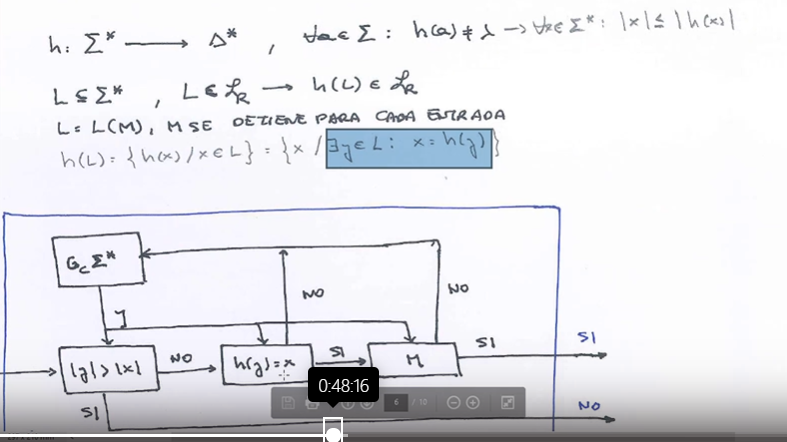 h: Σ* → Δ* , ∀a∈Σ: h(a)≠λ → ∀x∈Σ*: |x| ≤ |h(x)|
L ⊆ Σ* , L ∈ ℒR → h(L) ∈ ℒR
L = L(M), M SE DETIENE PARA CADA ENTRADA
h(L) = {h(x) / x∈L} = {x / ∃y∈L: x = h(y)}
Gc Σ*
y
NO
NO
|y| > |x|
NO
h(y) = x
SI
M
SI
SI
SI
NO
0:48:16
6 / 10